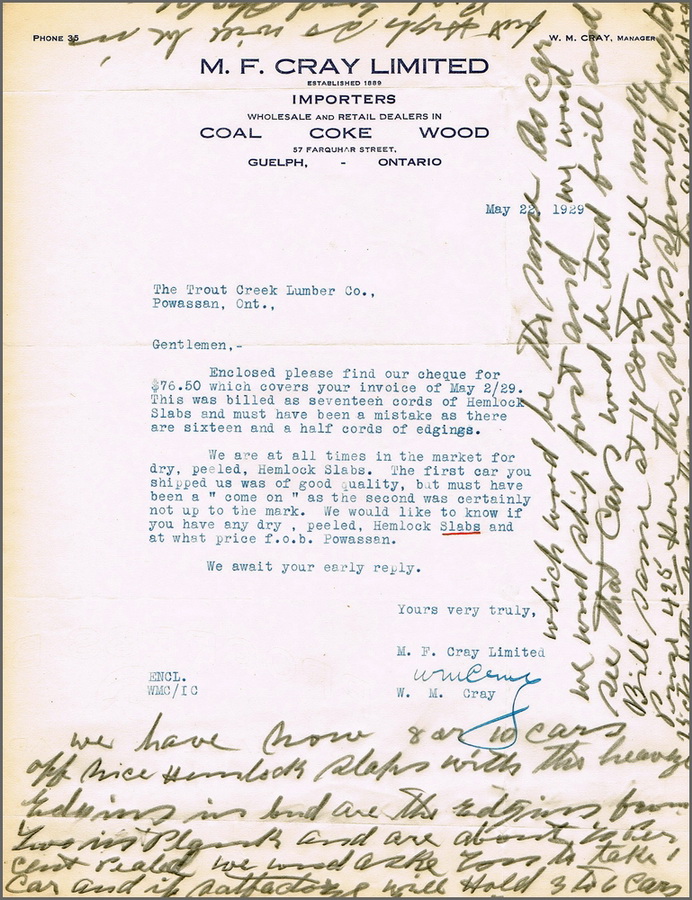 PHONE 35
W. M. CRAY, MANAGER
M. F. CRAY LIMITED
ESTABLISHED 1889
IMPORTERS
WHOLESALE AND RETAIL DEALERS IN
COAL COKE WOOD
57 FARQUHAR STREET,
GUELPH, - ONTARIO
May 22, 1929
The Trout Creek Lumber Co.,
Powassan, Ont.,
Gentlemen,-
Enclosed please find our cheque for
$76.50 which covers your invoice of May 2/29.
This was billed as seventeen cords of Hemlock
Slabs and must have been a mistake as there
are sixteen and a half cords of edgings.
We are at all times in the market for
dry, peeled, Hemlock Slabs. The first car you
shipped us was of good quality, but must have
been a " come on " as the second was certainly
not up to the mark. We would like to know if
you have any dry , peeled, Hemlock Slabs and
at what price f.o.b. Powassan.
We await your early reply.
Yours very truly,
M. F. Cray Limited
WM Cray
W. M. Cray
ENCL.
WMC/IC
we have now 8 or 10 cars
off nice Hemlock slaps with the heavey
Edgins in but are the Edgins from
Two in Plank and are about
cent Pealed we wood aske you to take 1
car and if satfactory will Hold 3 to 6 cars
which wood be the same as
we wood ship first and we wood
see that cars wood be load full and
Bill same at 17 cords will make
Price 425 Here this slaps should